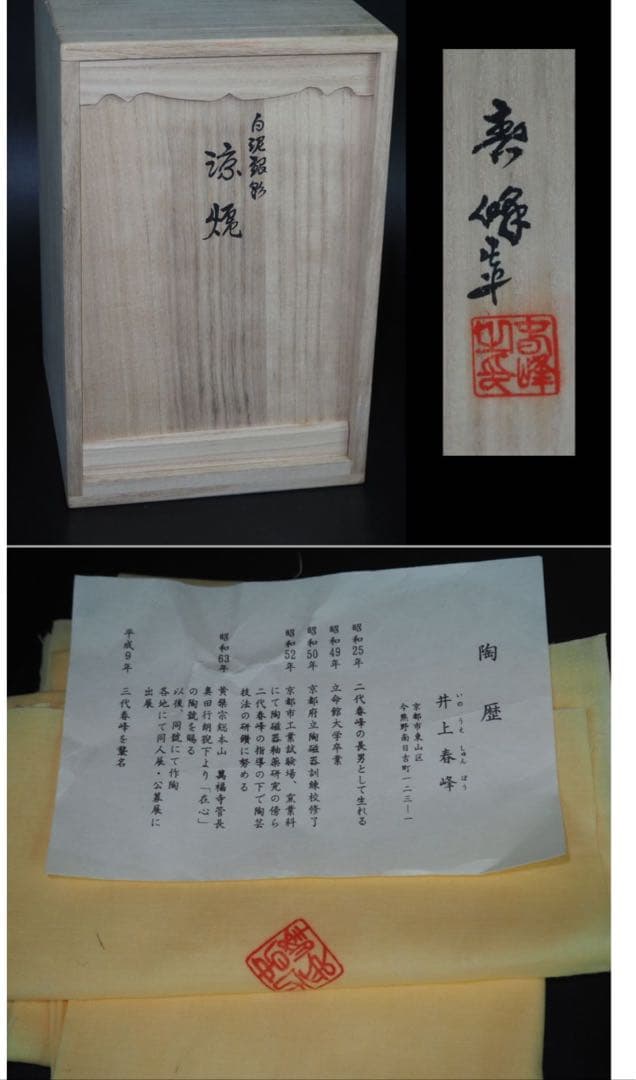 白泥銀彩
涼炉
春峰造
陶歴
いのうえ しゅんぽう
井上春峰
京都市東山区
今熊野南日吉町一二三ー一
昭和25年 二代春峰の長男として生れる
昭和49年 立命館大学卒業
昭和50年 京都府立陶磁器訓練校修了
昭和52年 京都市工業試験場、窯業科
にて陶磁器釉薬研究の傍ら
二代春峰の指導の下で陶芸
技法の研鑽に努める
昭和63年 黄檗宗総本山 萬福寺管長
奥田行朗猊下より「在心」
の陶號を賜る
以後、同號にて作陶
各地にて同人展・公募展に
出展
平成9年 三代春峰を襲名